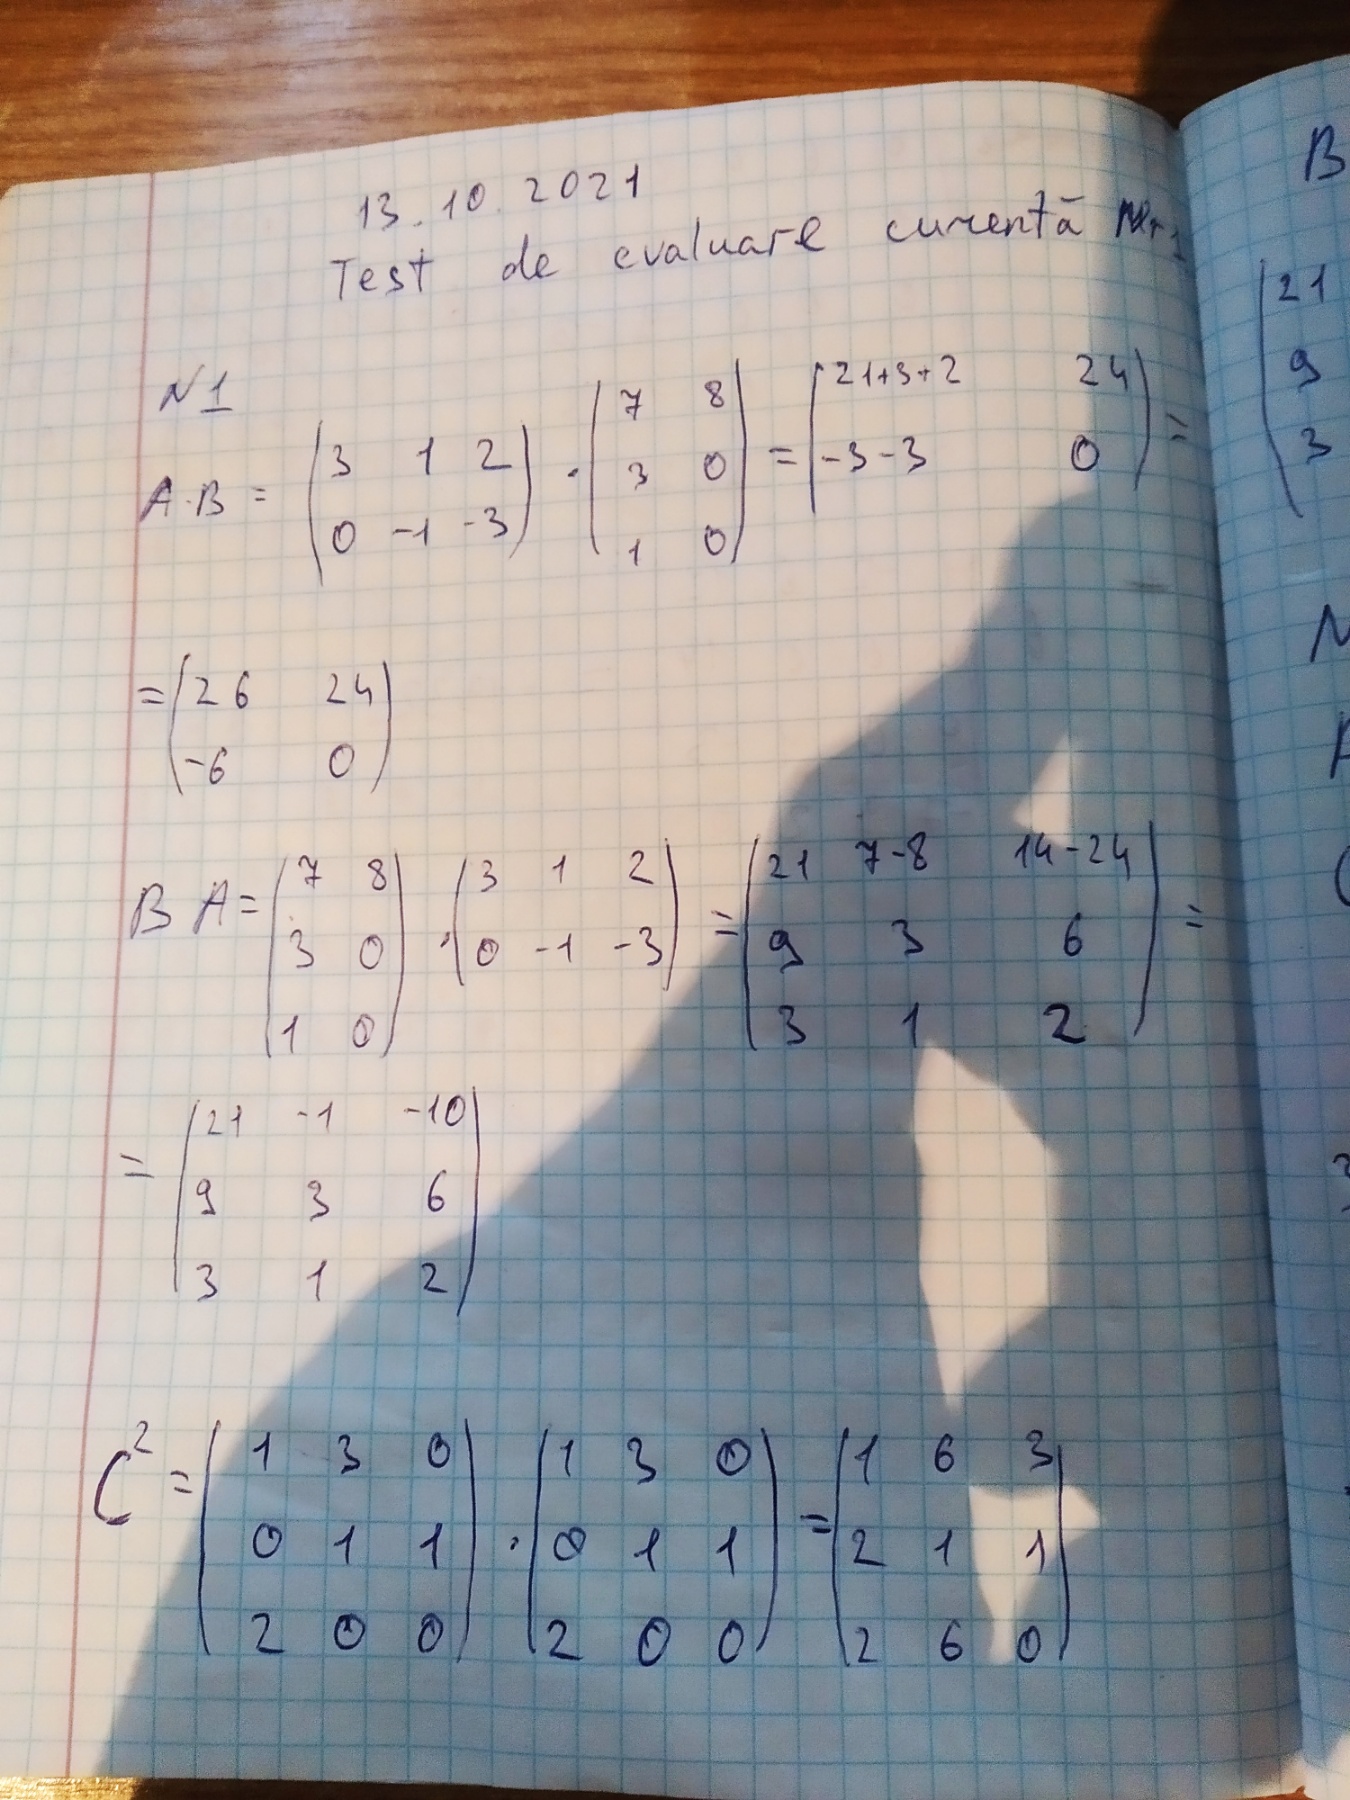 13.10.2021
Test de evaluare curentă Nr 1
N1
A·B = (3 1 2 / 0 -1 -3) · (7 8 / 3 0 / 1 0) = (21+3+2 24 / -3-3 0) =
= (26 24 / -6 0)
B A = (7 8 / 3 0 / 1 0) · (3 1 2 / 0 -1 -3) = (21 7-8 14-24 / 9 3 6 / 3 1 2) =
= (21 -1 -10 / 9 3 6 / 3 1 2)
C² = (1 3 0 / 0 1 1 / 2 0 0) · (1 3 0 / 0 1 1 / 2 0 0) = (1 6 3 / 2 1 1 / 2 6 0)
B
21
9
3